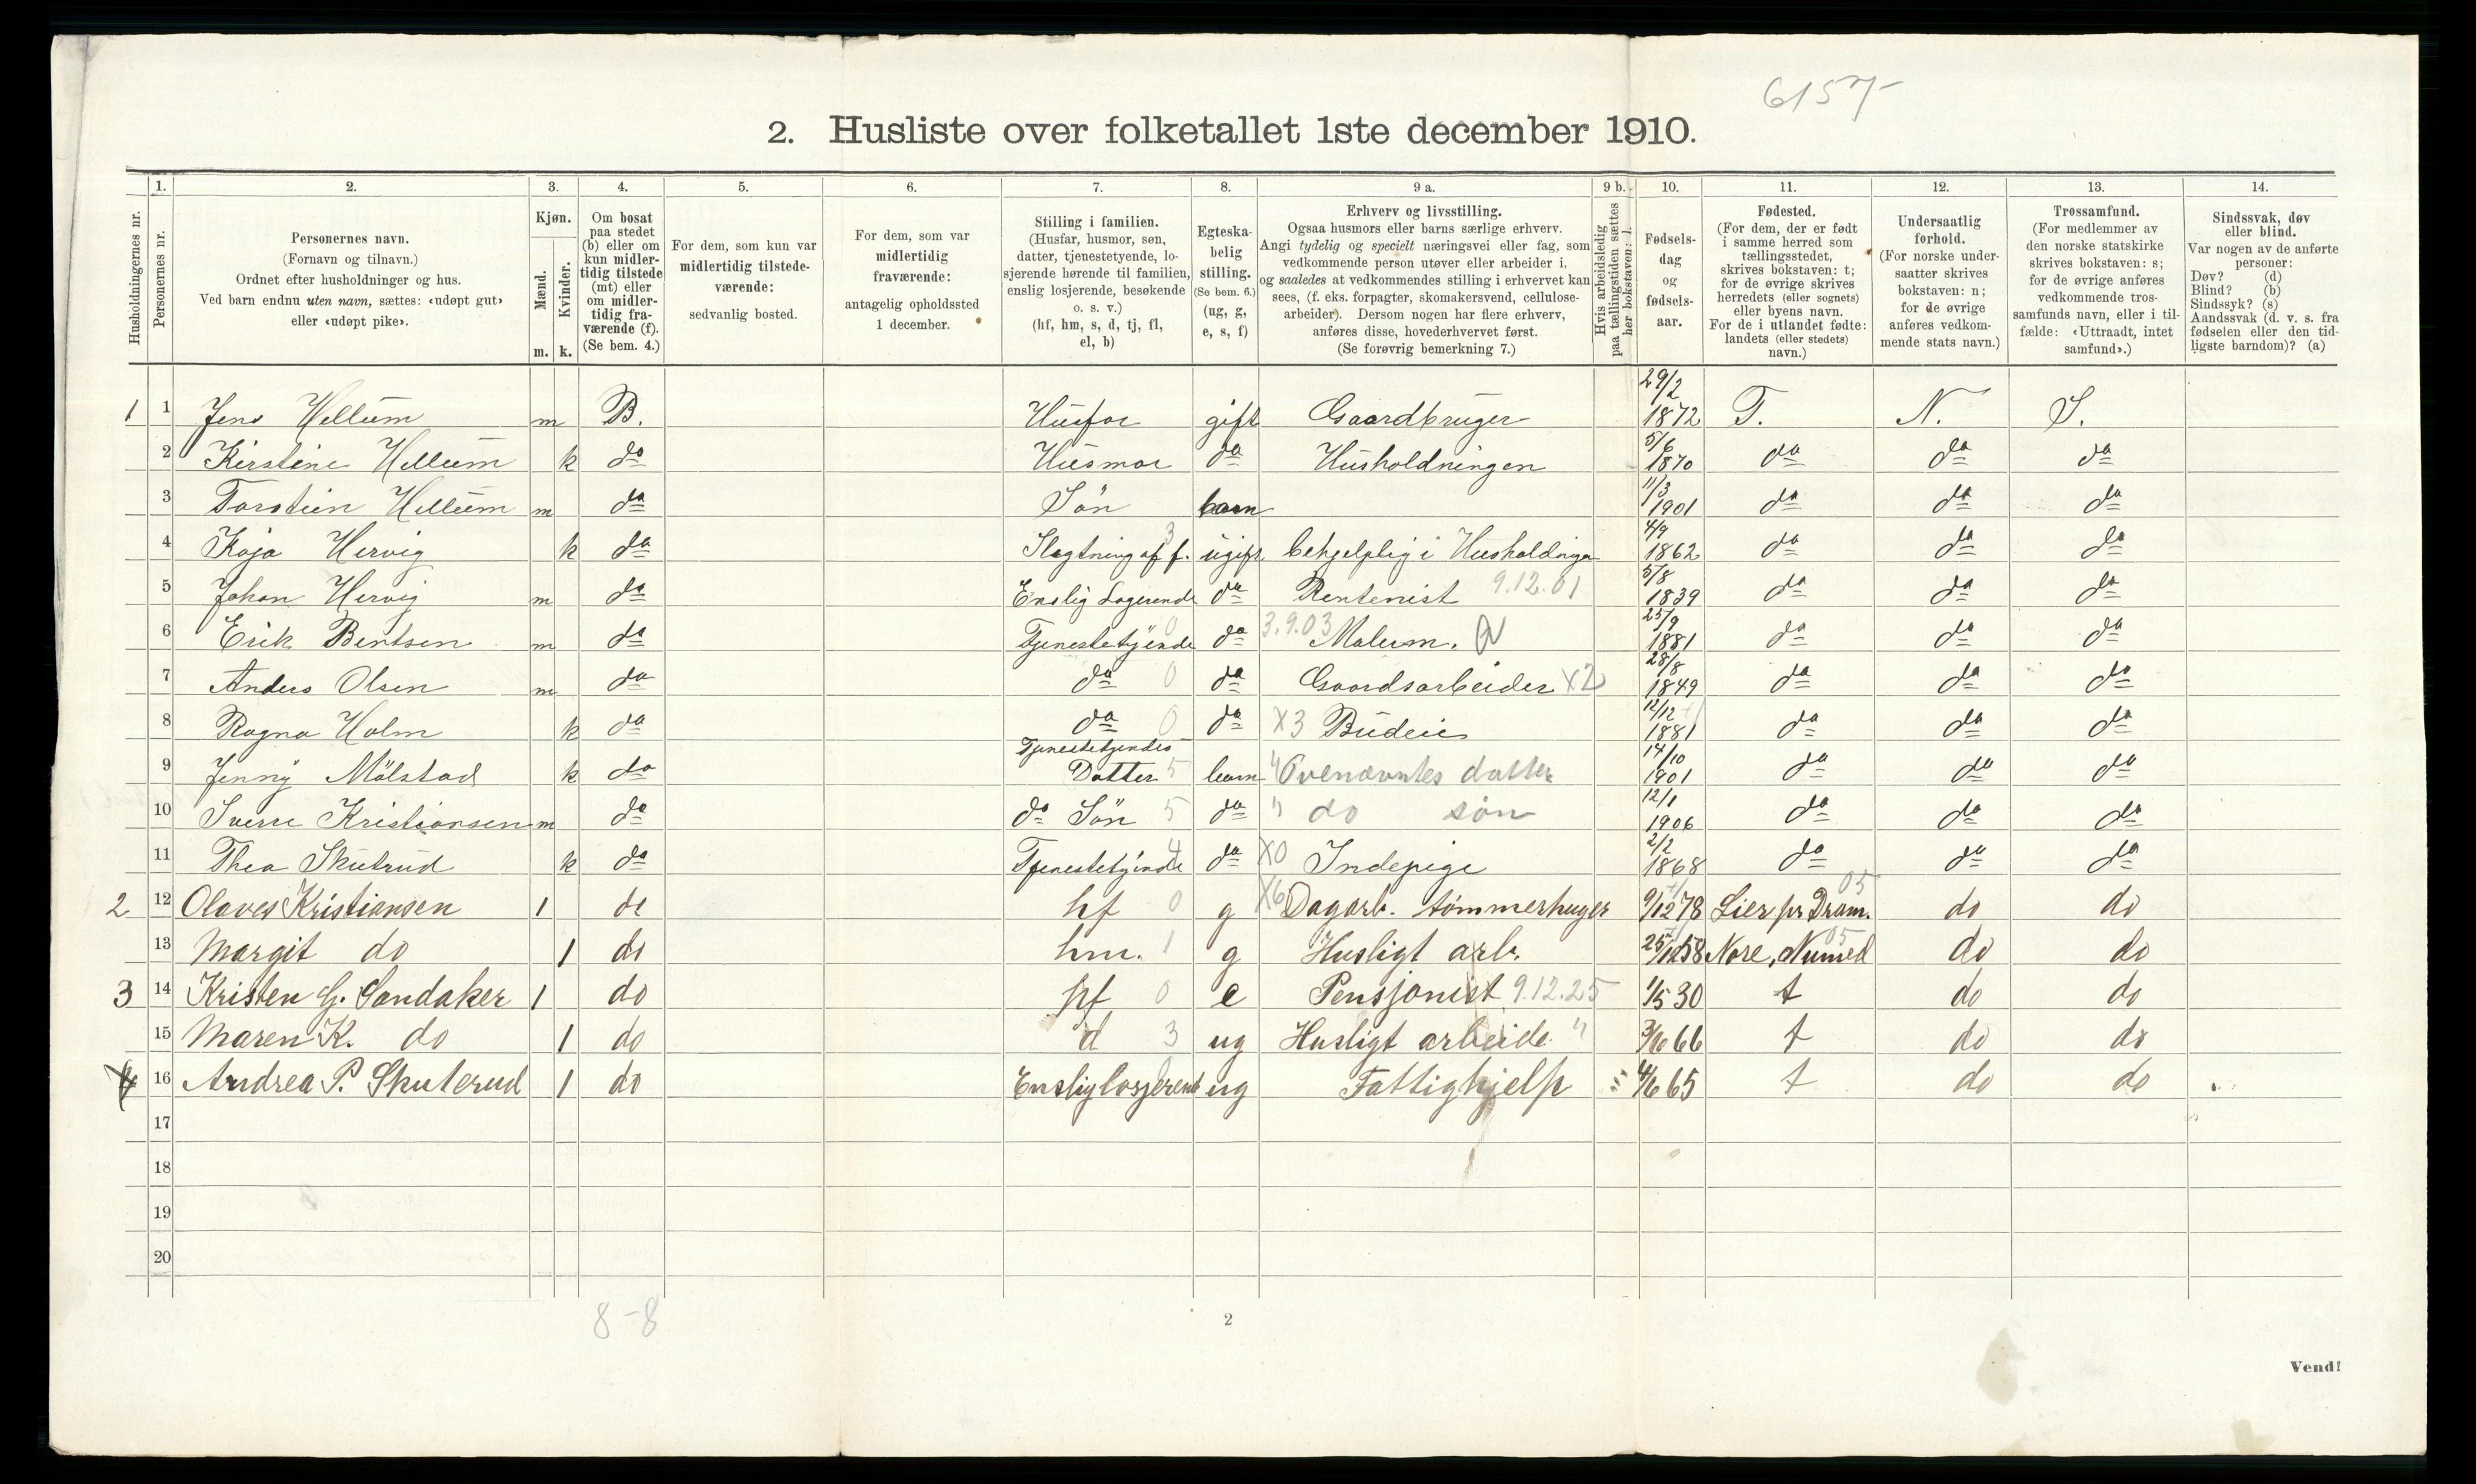 6157-
2. Husliste over folketallet 1ste december 1910.
1. 2. 3. 4. 5. 6. 7. 8. 9 a. 9 b. 10. 11. 12. 13. 14.
Husholdningernes nr.
Personernes nr.
Personernes navn.
(Fornavn og tilnavn.)
Ordnet efter husholdninger og hus.
Ved barn endnu uten navn, sættes: «udøpt gut»
eller «udøpt pike».
Kjøn.
Mænd.
Kvinder.
m. k.
Om bosat
paa stedet
(b) eller om
kun midler-
tidig tilstede
(mt) eller
om midler-
tidig fra-
værende (f).
(Se bem. 4.)
For dem, som kun var
midlertidig tilstede-
værende:
sedvanlig bosted.
For dem, som var
midlertidig
fraværende:
antagelig opholdssted
1 december.
Stilling i familien.
(Husfar, husmor, søn,
datter, tjenestetyende, lo-
sjerende hørende til familien,
enslig losjerende, besøkende
o. s. v.)
(hf, hm, s, d, tj, fl,
el, b)
Egteska-
belig
stilling.
(Se bem. 6.)
(ug, g,
e, s, f)
Erhverv og livsstilling.
Ogsaa husmors eller barns særlige erhverv.
Angi tydelig og specielt næringsvei eller fag, som
vedkommende person utøver eller arbeider i,
og saaledes at vedkommendes stilling i erhvervet kan
sees, (f. eks. forpagter, skomakersvend, cellulose-
arbeider). Dersom nogen har flere erhverv,
anføres disse, hovederhvervet først.
(Se forøvrig bemerkning 7.)
Hvis arbeidsledig
paa tællingstiden sættes
her bokstaven: l.
Fødsels-
dag
og
fødsels-
aar.
Fødested.
(For dem, der er født
i samme herred som
tællingsstedet,
skrives bokstaven: t;
for de øvrige skrives
herredets (eller sognets)
eller byens navn.
For de i utlandet fødte:
landets (eller stedets)
navn.)
Undersaatlig
forhold.
(For norske under-
saatter skrives
bokstaven: n;
for de øvrige
anføres vedkom-
mende stats navn.)
Trossamfund.
(For medlemmer av
den norske statskirke
skrives bokstaven: s;
for de øvrige anføres
vedkommende tros-
samfunds navn, eller i til-
fælde: «Uttraadt, intet
samfund».)
Sindssvak, døv
eller blind.
Var nogen av de anførte
personer:
Døv? (d)
Blind? (b)
Sindssyk? (s)
Aandssvak (d. v. s. fra
fødselen eller den tid-
ligste barndom)? (a)
1 1 Jens Hellum m B. Husfar gift Gaardbruger 29/2 1872 T. N. S.
2 Kirstine Hellum k do Husmor do Husholdningen 5/6 1870 do do do
3 Torstein Hellum m do Sön barn 11/3 1901 do do do
4 Kaja Hervig k do Slegtning af f. 3 ugift behjelplig i Husholdningen 4/9 1862 do do do
5 Johan Hervig m do Enslig Logerende do Rentenist 9.12.01 5/8 1839 do do do
6 Erik Bentsen m do Tjenestetyende 0 do 3.9.03 25/9 1881 do do do
7 Anders Olsen m do do 0 do Gaardsarbeider X2 28/8 1849 do do do
8 Ragna Holm k do do 0 do X3 Budeie 12/12 1881 do do do
9 Jenny Mölstad k do Tjenestetyendes Datter 5 barn " Ovenævntes datter 14/10 1901 do do do
10 Sverre Kristiansen m do do Sön 5 do " do søn 12/1 1906 do do do
11 Thea Skutrud k do Tjenestetyende 4 do X0 Indepige 2/2 1868 do do do
2 12 Olaves Kristiansen 1 do hf 0 g X6 Dagarb. tømmerhuger 9/12 78 Lier pr Dram. 05 do do
13 Margit do 1 do hm. 1 g Husligt arb. 25/12 58 Nore, Numed 05 do do
3 14 Kristen G. Sandaker 1 do hf 0 e Pensjonist 9.12.25 1/5 30 t do do
15 Maren K. do 1 do d 3 ug Husligt arbeide " 3/6 66 t do do
16 Andrea P. Skuterud 1 do Enslig losjerende ug Fattighjelp 4/6 65 t do do
17
18
19
20
8-8
2
Vend!